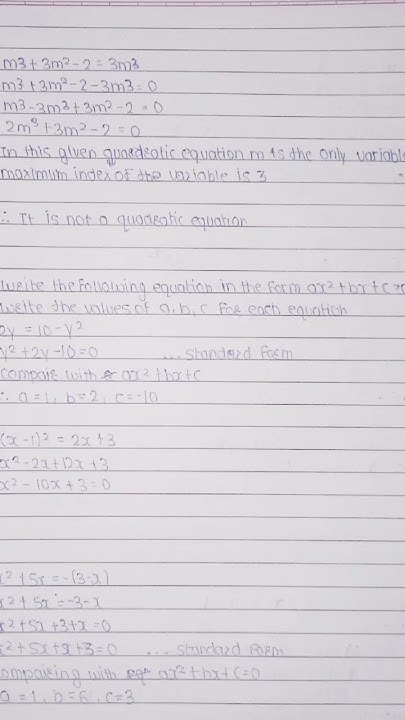 m3 + 3m² - 2 = 3m3
m3 + 3m² - 2 - 3m3 = 0
m3 - 3m3 + 3m² - 2 = 0
2m3 + 3m² - 2 = 0
In this given quardeotic equation m is the only variable
maximum index of the variable is 3
∴ It is not a quadeotic equation
Write the following equation in the form ax² + bx + c = 0
Write the values of a, b, c for each equation
2y = 10 - y²
y² + 2y - 10 = 0 ... standard form
compare with ax² + bx + c
∴ a = 1, b = 2, c = -10
(x - 1)² = 2x + 3
x² - 2x + 12x + 3
x² - 10x + 3 = 0
x² + 5x = -(3 - x)
x² + 5x = -3 - x
x² + 5x + 3 + x = 0
x² + 5x + x + 3 = 0 ... standard form
comparing with ax² + bx + c = 0
a = 1, b = 6, c = 3